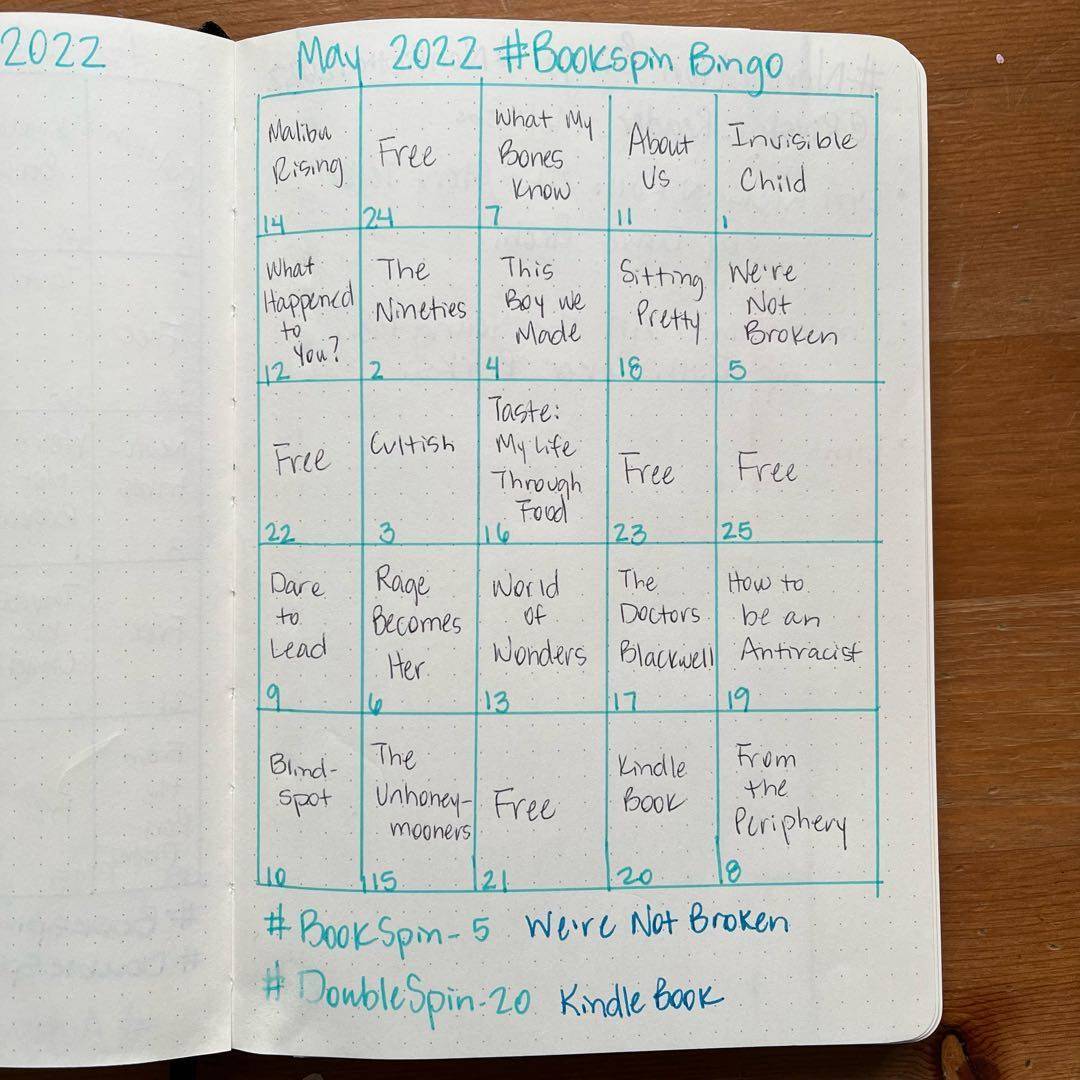 2022
May 2022 #Bookspin Bingo
Malibu
Rising
14
Free
24
What My
Bones
Know
7
About
Us
11
Invisible
Child
1
What
Happened
to
You?
12
The
Nineties
2
This
Boy We
Made
4
Sitting
Pretty
18
We're
Not
Broken
5
Free
22
Cultish
3
Taste:
My Life
Through
Food
16
Free
23
Free
25
Dare
to
Lead
9
Rage
Becomes
Her
6
World
of
Wonders
13
The
Doctors
Blackwell
17
How to
be an
Antiracist
19
Blind-
spot
10
The
Unhoney-
mooners
15
Free
21
Kindle
Book
20
From
the
Periphery
8
#BookSpin-5 We're Not Broken
#DoubleSpin-20 Kindle Book